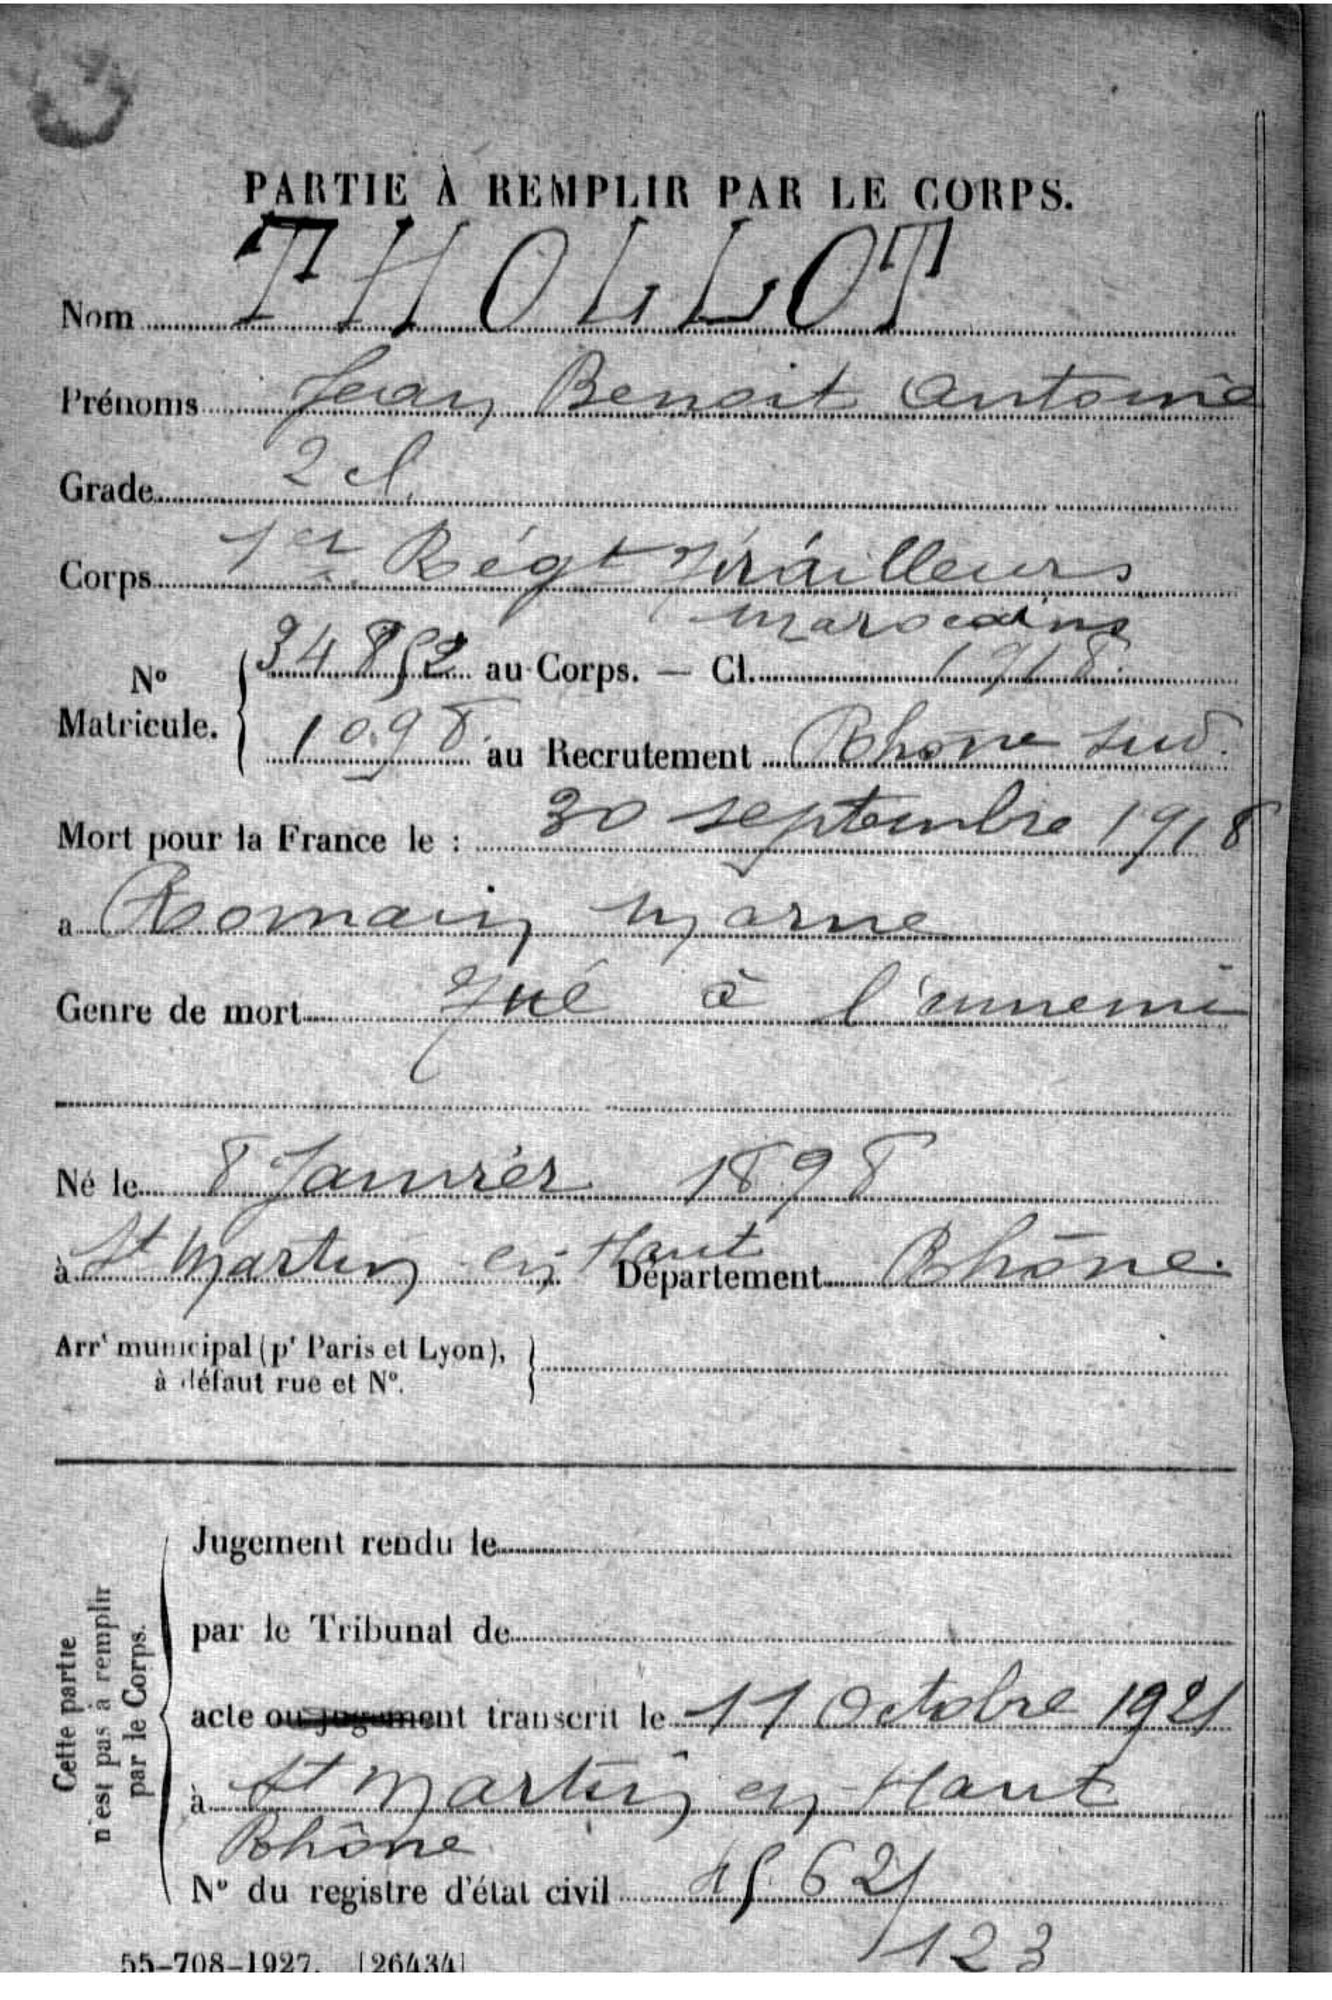 PARTIE À REMPLIR PAR LE CORPS.
Nom THOLLOT
Prénoms Jean Benoit Antoine
Grade 2 cl.
Corps 1er Régt Tirailleurs
marocains
No Matricule. 34852 au Corps. — Cl. 1918.
1098. au Recrutement Rhône sud.
Mort pour la France le : 30 septembre 1918
a Romain Marne
Genre de mort Tué à l'ennemi
Né le 8 Janvier 1898
à St Martin en Haut Département Rhône.
Arrt municipal (pr Paris et Lyon),
à défaut rue et No.
Cette partie
n'est pas à remplir
par le Corps.
Jugement rendu le
par le Tribunal de
acte ou jugement transcrit le 11 Octobre 1921
à St Martin en-Haut
Rhône
No du registre d'état civil 4562/
123
55-708-1927. [26434]